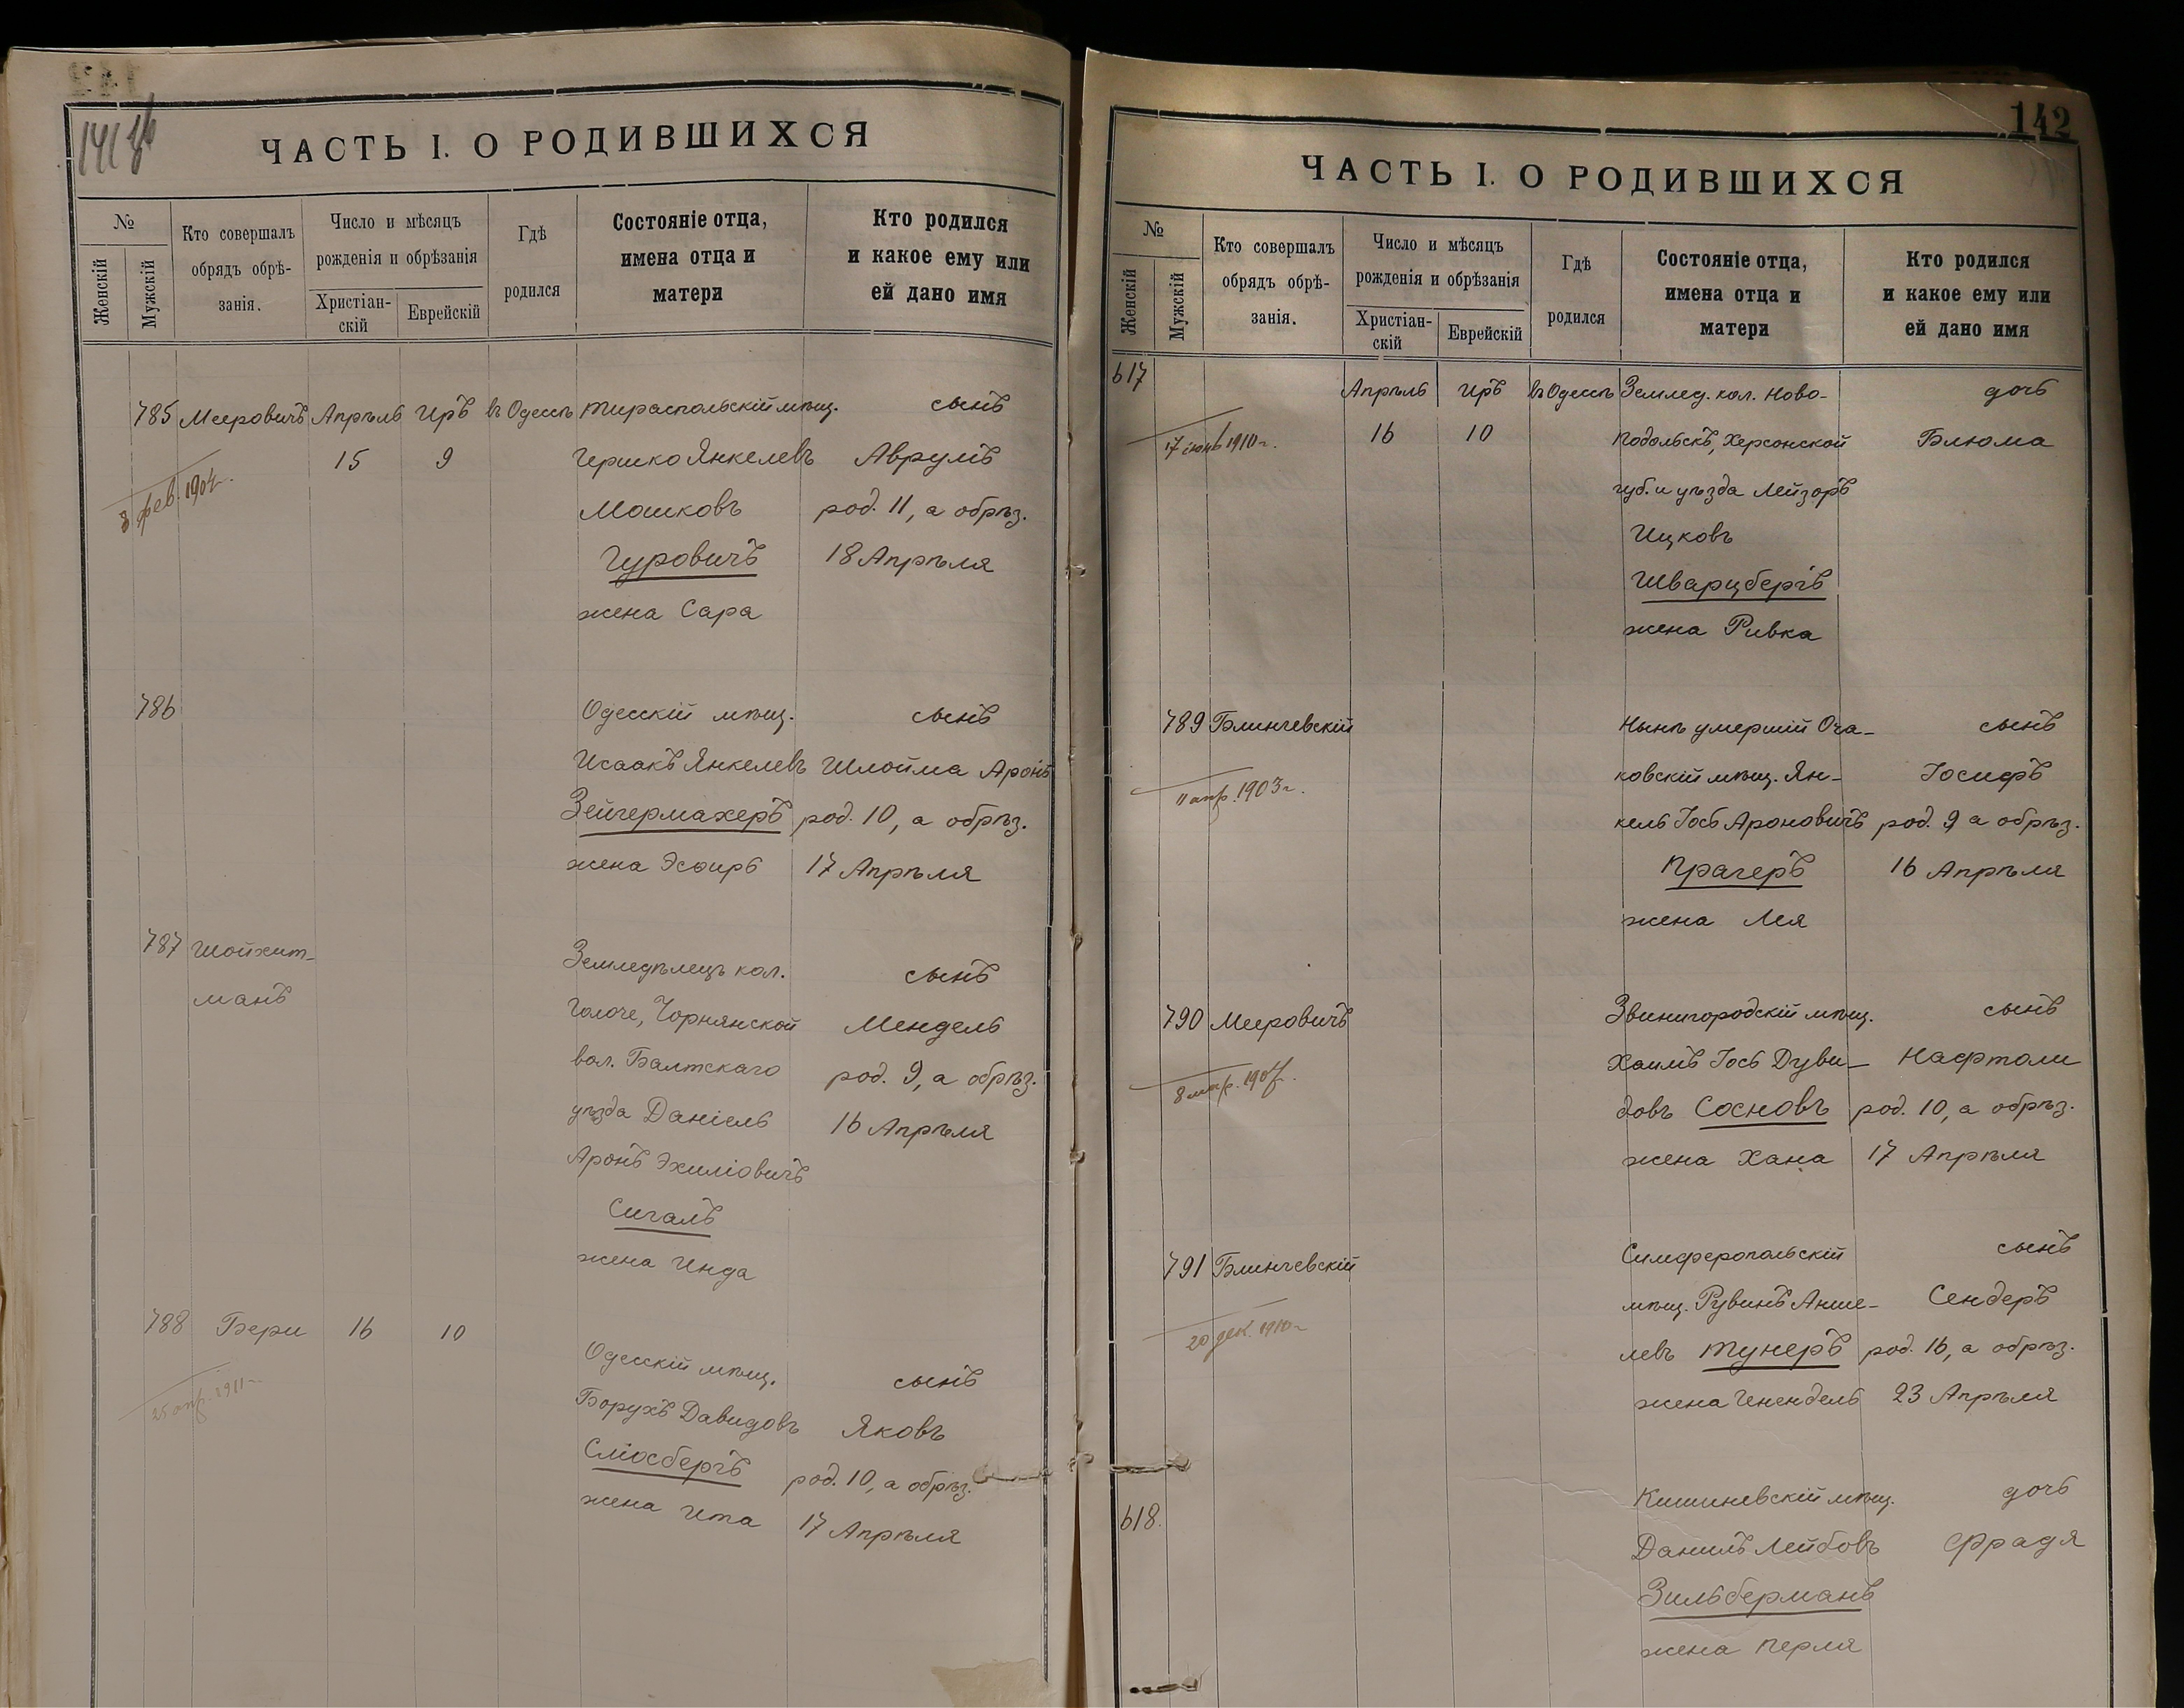 141 об
ЧАСТЬ I. О РОДИВШИХСЯ
№
Женскій
Мужскій
Кто совершалъ
обрядъ обрѣ-
занія.
Число и мѣсяцъ
рожденія и обрѣзанія
Христіан-
скій
Еврейскій
Гдѣ
родился
Состояніе отца,
имена отца и
матери
Кто родился
и какое ему или
ей дано имя
785 Мееровичъ Апрѣль Иръ въ Одессѣ Тираспольскій мѣщ. сынъ
15 9 Гершко Янкелевъ Аврумъ
8 фев. 1904г.
Мошковъ род. 11, а обрѣз.
Гуровичъ 18 Апрѣля
жена Сара
786 Одесскій мѣщ. сынъ
Исаакъ Янкелевъ Шлойма Аронъ
Зейгермахеръ род. 10, а обрѣз.
жена Эсѳирь 17 Апрѣля
787 Шойхет-
манъ
Земледѣлецъ кол. сынъ
Голоче, Чорнянской Мендель
вол. Балтскаго род. 9, а обрѣз.
уѣзда Даніель 16 Апрѣля
Аронъ Эхиліовичъ
Сигалъ
жена Инда
788 Бери 16 10
Одесскій мѣщ. сынъ
25 апр. 1911г.
Борухъ Давидовъ Яковъ
Сліосбергъ род. 10, а обрѣз.
жена Ита 17 Апрѣля
142
ЧАСТЬ I. О РОДИВШИХСЯ
№
Женскій
Мужскій
Кто совершалъ
обрядъ обрѣ-
занія.
Число и мѣсяцъ
рожденія и обрѣзанія
Христіан-
скій
Еврейскій
Гдѣ
родился
Состояніе отца,
имена отца и
матери
Кто родился
и какое ему или
ей дано имя
617 Апрѣль Иръ въ Одессѣ Землед. кол. Ново- дочь
17 іюнь 1910г. 16 10 Подольскъ, Херсонской Блюма
губ. и уѣзда Лейзоръ
Ицковъ
Шварцбергъ
жена Ривка
789 Блинчевскій Нынѣ умершій Оча- сынъ
11 апр. 1903г. ковскій мѣщ. Ян- Іосифъ
кель Іось Ароновичъ род. 9 а обрѣз.
Прагеръ 16 Апрѣля
жена Лея
790 Мееровичъ Звенигородскій мѣщ. сынъ
Хаимъ Іось Дуви- Нафтоли
довъ Сосновъ род. 10, а обрѣз.
жена Хана 17 Апрѣля
791 Блинчевскій Симферопольскій сынъ
20 дек. 1910г. мѣщ. Рувинъ Анше- Сендеръ
левъ Тунеръ род. 16, а обрѣз.
жена Енендель 23 Апрѣля
618. Кишиневскій мѣщ. дочь
Данилъ Лейбовъ Фрадя
Зильберманъ
жена Перля